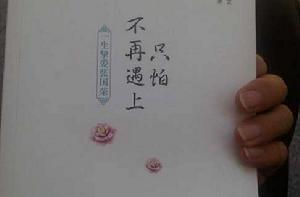 只怕
不再遇上
一生挚爱张国荣